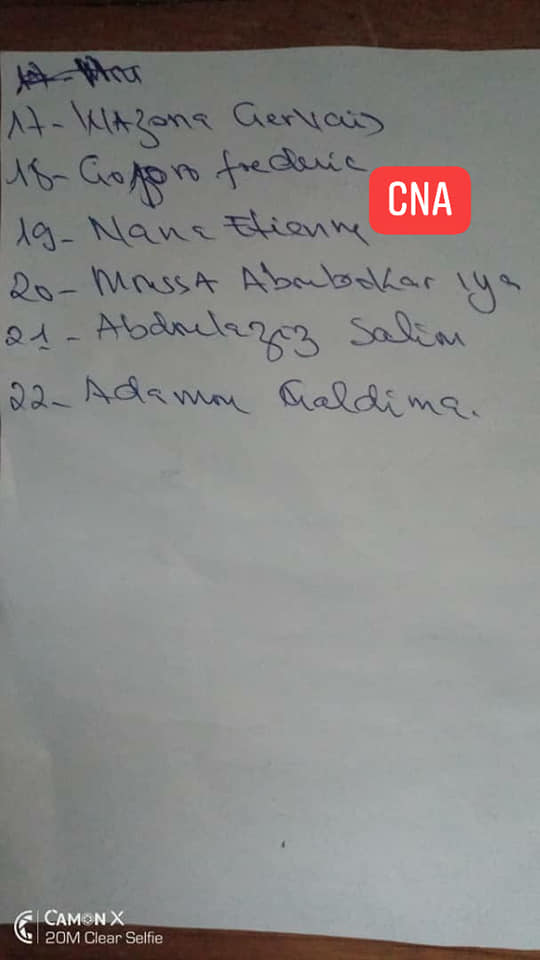 17- Wazona Gervais
18- Gogoro frederic
CNA
19- Nana Etienne
20- Moussa Aboubakar iya
21- Abdoulaziz Salim
22- Adamou Galdima.
CAMON X
20M Clear Selfie